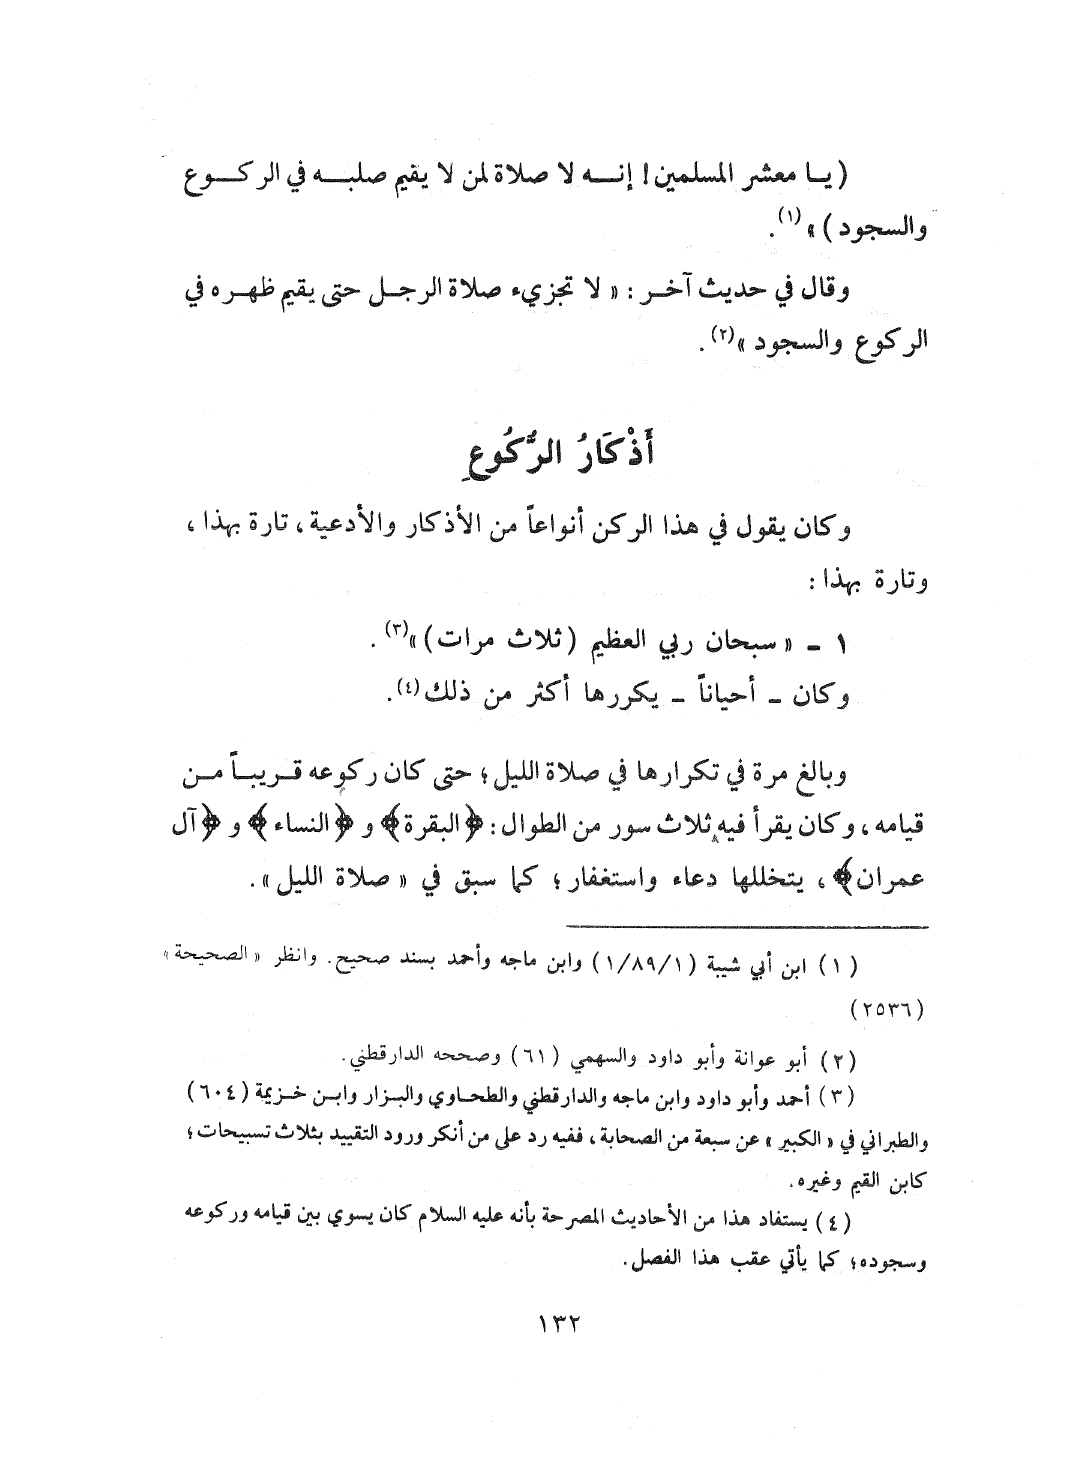 ( يا معشر المسلمين ! إنه لا صلاة لمن لا يقيم صلبه في الركوع
والسجود ) »(١).
وقال في حديث آخر : « لا تجزيء صلاة الرجل حتى يقيم ظهره في
الركوع والسجود »(٢).
أَذْكَارُ الرُّكُوعِ
وكان يقول في هذا الركن أنواعاً من الأذكار والأدعية ، تارة بهذا ،
وتارة بهذا :
١ ـ « سبحان ربي العظيم (ثلاث مرات) »(٣).
وكان ـ أحياناً ـ يكررها أكثر من ذلك(٤).
وبالغ مرة في تكرارها في صلاة الليل ؛ حتى كان ركوعه قريباً من
قيامه ، وكان يقرأ فيه ثلاث سور من الطوال : ﴿البقرة﴾ و ﴿النساء﴾ و ﴿آل
عمران﴾ ، يتخللها دعاء واستغفار ؛ كما سبق في « صلاة الليل » .
(١) ابن أبي شيبة (١/٨٩/١) وابن ماجه وأحمد بسند صحيح . وانظر « الصحيحة »
(٢٥٣٦)
(٢) أبو عوانة وأبو داود والسهمي (٦١) وصححه الدارقطني .
(٣) أحمد وأبو داود وابن ماجه والدارقطني والطحاوي والبزار وابن خزيمة (٦٠٤)
والطبراني في « الكبير » عن سبعة من الصحابة ، ففيه رد على من أنكر ورود التقييد بثلاث تسبيحات ؛
كابن القيم وغيره .
(٤) يستفاد هذا من الأحاديث المصرحة بأنه عليه السلام كان يسوي بين قيامه وركوعه
وسجوده ؛ كما يأتي عقب هذا الفصل .
١٣٢